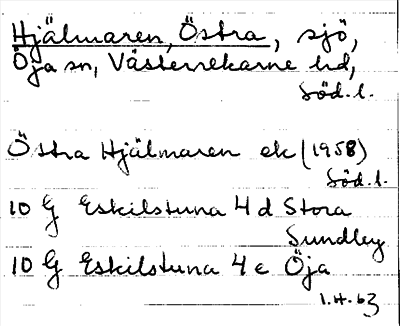 Hjälmaren, Östra, sjö,
Öja sn, Västerrekarne hd,
Söd.l.
Östra Hjälmaren ek (1958)
Söd.l.
10 G Eskilstuna 4 d Stora
Sundby
10 G Eskilstuna 4 e Öja
1.H.63